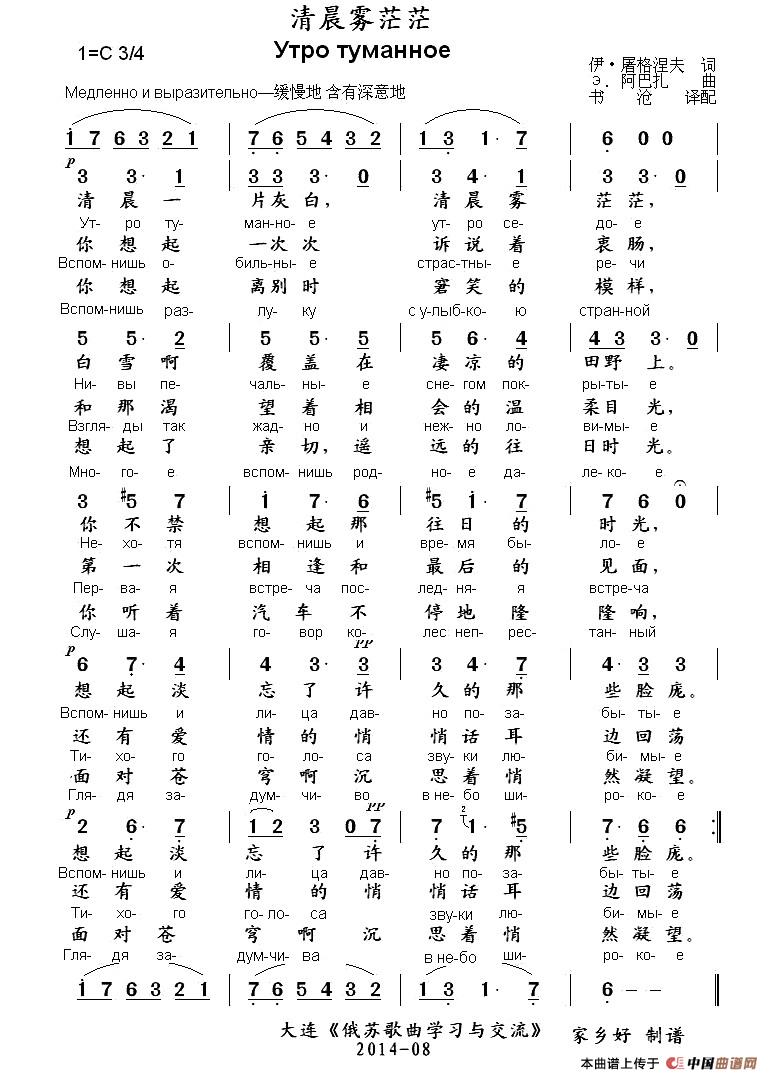 清晨雾茫茫
Утро туманное
1=C 3/4
伊·屠格涅夫 词
Э. 阿巴扎 曲
书沧 译配
Медленно и выразительно—缓慢地 含有深意地
i 7 6 3 2 1 | 7 6 5 4 3 2 | 1 3 1· 7 | 6 0 0
p
3 3· 1 | 3 3 3· 0 | 3 4· 1 | 3 3· 0
清 晨 一 片灰白, 清 晨 雾 茫 茫,
Ут- ро ту- ман-но- е ут- ро се- до- е
你 想 起 一次 次 诉 说 着 衷 肠,
Вспом-нишь о- биль-ны- е страс-тны- е ре- чи
你 想 起 离别 时 窘 笑 的 模 样,
Вспом-нишь раз- лу- ку с у-лыб-ко- ю стран-ной
5 5· 2 | 5 5· 5 | 5 6· 4 | 4 3 3· 0
白 雪 啊 覆 盖 在 凄 凉 的 田 野 上。
Ни- вы пе- чаль- ны- е сне- гом пок- ры-ты- е
和 那 渴 望 着 相 会 的 温 柔目 光,
Взгля-ды так жад- но и неж-но ло- ви-мы- е
想 起 了 亲 切,遥 远 的 往 日时 光。
Мно- го- е вспом- нишь род- но- е да- ле- ко- е
3 #5 7 | i 7· 6 | #5 i· 7 | 7 6 0
你 不 禁 想 起 那 往 日 的 时 光,
Не- хо- тя вспом-нишь и вре- мя бы- ло- е
第 一 次 相 逢 和 最 后 的 见 面,
Пер- ва- я встре- ча пос- лед- ня- я встре-ча
你 听 着 汽 车 不 停 地 隆 隆 响,
Слу- ша- я го- вор ко- лес неп- рес- тан- ный
p pp
6 7· 4 | 4 3· 3 | 3 4· 7 | 4 3 3
想 起 淡 忘 了 许 久 的 那 些 脸 庞。
Вспом-нишь и ли- ца дав- но по- за- бы- ты- е
还 有 爱 情 的 悄 悄 话 耳 边 回 荡
Ти- хо- го го- ло- са зву- ки лю- би- мы- е
面 对 苍 穹 啊 沉 思 着 悄 然 凝 望。
Гля- дя за- дум- чи- во в не- бо ши- ро- ко- е
p pp
2 6· 7 | 1 2 3 0 7 | 7 2 1· #5 | 7· 6 6
想 起 淡 忘 了 许 久 的 那 些 脸 庞。
Вспом- нишь и ли- ца дав- но по- за- бы- ты- е
还 有 爱 情 的 悄 悄 话 耳 边 回 荡
Ти- хо- го го- ло- са зву- ки лю- би- мы- е
面 对 苍 穹 啊 沉 思 着 悄 然 凝 望。
Гля- дя за- дум-чи- ва в не- бо ши- ро- ко- е
i 7 6 3 2 1 | 7 6 5 4 3 2 | 1 3 1· 7 | 6 – –
大连《俄苏歌曲学习与交流》 家乡好 制谱
2014-08
本曲谱上传于 中国曲谱网